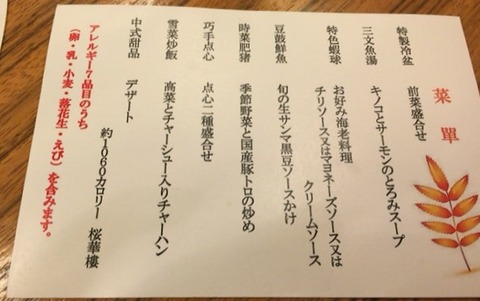 菜單
特製冷盆　前菜盛合せ
三文魚湯　キノコとサーモンのとろみスープ
特色蝦球　お好み海老料理
チリソース又はマヨネーズソース又は
クリームソース
豆鼓鮮魚　旬の生サンマ黒豆ソースかけ
時菜肥猪　季節野菜と国産豚トロの炒め
巧手点心　点心二種盛合せ
雪菜炒飯　高菜とチャーシュー入りチャーハン
中式甜品　デザート
約1060カロリー　桜華樓
アレルギー7品目のうち
（卵・乳・小麦・落花生・えび）を含みます。